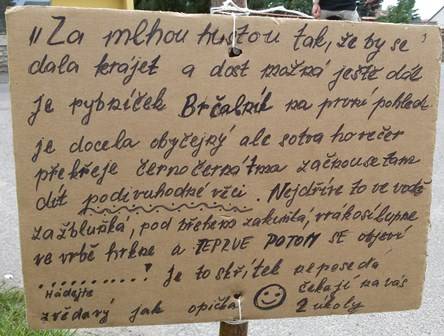 "Za mlhou hustou tak, že by se
dala krájet a dost možná ještě dál
je rybníček Brčálník na první pohled
je docela obyčejný ale sotva ho večer
překreje černočerná tma začnou se tam
dít podivuhodné věci. Nejdříve to ve vodě
zažbluňká, pod břehem zakuňká, v rákosí šupne
ve vrbě hrkne a TEPRVE POTOM se objeví
............? Je to skřítek neposeda
Hádejte čekají na vás
zvědavý jak opička 2 úkoly